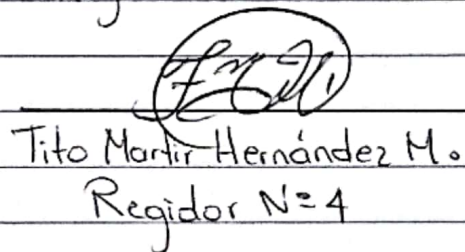 Tito Martir Hernández M.
Regidor N=4